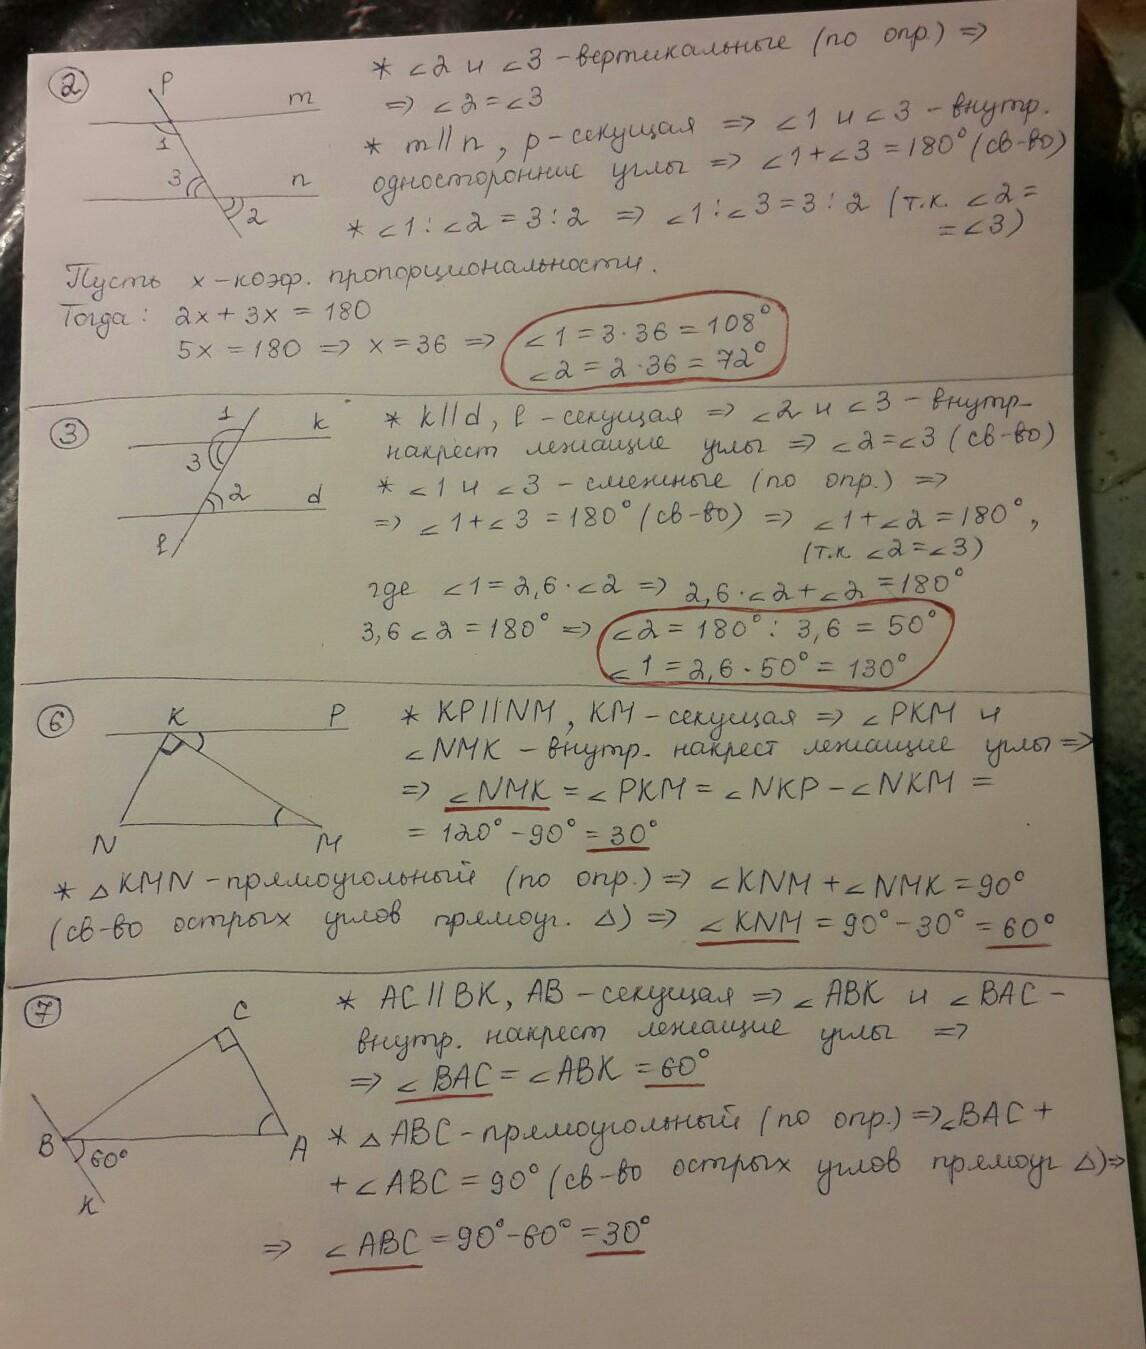 2
p
m
1
3
n
2
* ∠2 и ∠3 - вертикальные (по опр.) =>
=> ∠2 = ∠3
* m || n, p - секущая => ∠1 и ∠3 - внутр.
односторонние углы => ∠1 + ∠3 = 180° (св-во)
* ∠1 : ∠2 = 3 : 2 => ∠1 : ∠3 = 3 : 2 (т.к. ∠2 =
= ∠3)
Пусть x - коэф. пропорциональности.
Тогда: 2x + 3x = 180
5x = 180 => x = 36 => ∠1 = 3·36 = 108°
∠2 = 2·36 = 72°
3
1
k
3
2
d
ℓ
* k || d, ℓ - секущая => ∠2 и ∠3 - внутр.
накрест лежащие углы => ∠2 = ∠3 (св-во)
* ∠1 и ∠3 - смежные (по опр.) =>
=> ∠1 + ∠3 = 180° (св-во) => ∠1 + ∠2 = 180°,
(т.к ∠2 = ∠3)
где ∠1 = 2,6·∠2 => 2,6·∠2 + ∠2 = 180°
3,6∠2 = 180° => ∠2 = 180° : 3,6 = 50°
∠1 = 2,6·50° = 130°
6
K
P
N
M
* KP || NM, KM - секущая => ∠PKM и
∠NMK - внутр. накрест лежащие углы =>
=> ∠NMK = ∠PKM = ∠NKP - ∠NKM =
= 120° - 90° = 30°
* △KMN - прямоугольный (по опр.) => ∠KNM + ∠NMK = 90°
(св-во острых углов прямоуг. △) => ∠KNM = 90° - 30° = 60°
7
C
B
60°
A
K
* AC || BK, AB - секущая => ∠ABK и ∠BAC -
внутр. накрест лежащие углы =>
=> ∠BAC = ∠ABK = 60°
* △ABC - прямоугольный (по опр.) => ∠BAC +
+ ∠ABC = 90° (св-во острых углов прямоуг △) =>
=> ∠ABC = 90° - 60° = 30°